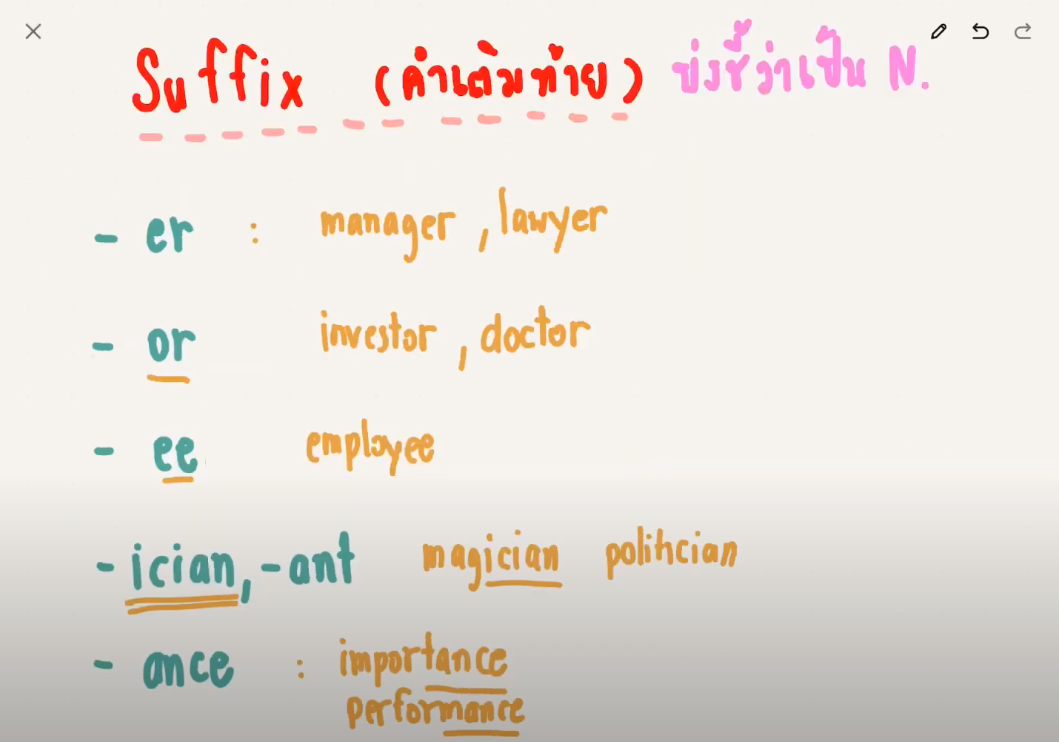 Suffix (คำเติมท้าย) บ่งชี้ว่าเป็น N.
- er : manager, lawyer
- or investor, doctor
- ee employee
- ician, -ant magician politician
- ance : importance
performance